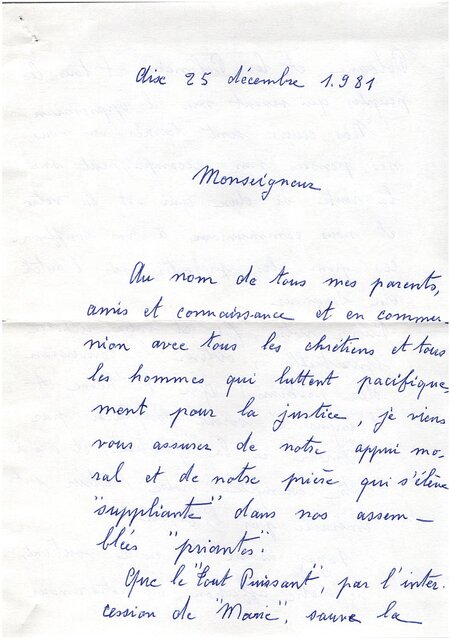 Aix 25 décembre 1.981
Monseigneur
Au nom de tous mes parents,
amis et connaissance et en commu-
nion avec tous les chrétiens et tous
les hommes qui luttent pacifique-
ment pour la justice, je viens
vous assurer de notre appui mo-
ral et de notre prière qui s'élève
"suppliante" dans nos assem-
blées "priantes".
Que le "Tout Puissant", par l'inter-
cession de "Marie", sauve la